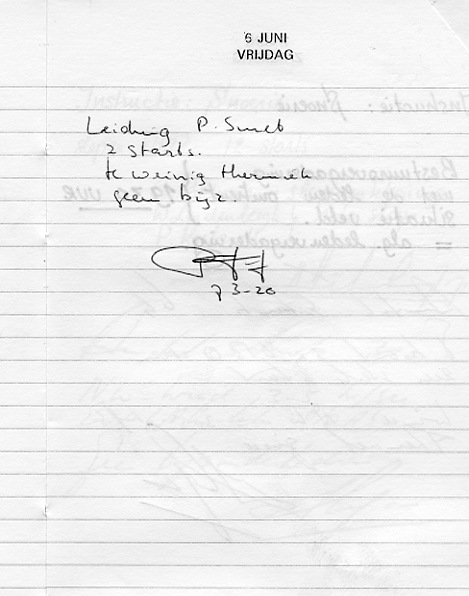 6 JUNI
VRIJDAG
Leiding P. Smet
2 starts.
te weinig thermiek
geen bijz.
3-20